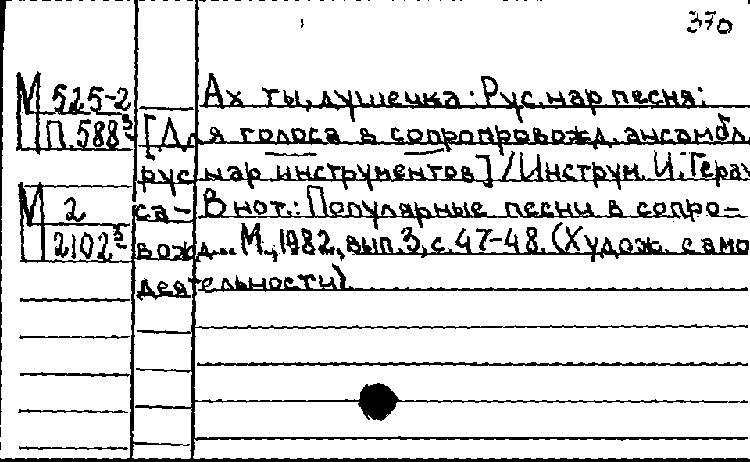 370
М 525-2
П.588³
М 2
2102⁵
Ах ты, душечка: Рус. нар песня:
[Для голоса в сопропровожд. ансамбл.
рус нар инструментов] / Инструм. И. Гера
са – В нот.: Популярные песни в сопро–
вожд... М., 1982, вып. 3, с. 47–48. (Худож. само
деятельности)